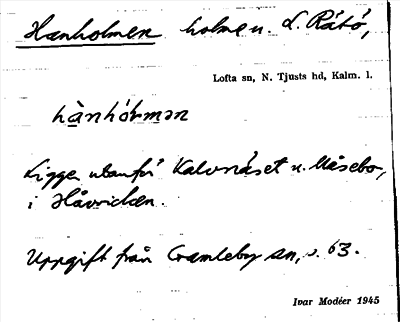 Hanholmen holme u. L. Rätö,
Lofta sn, N. Tjusts hd, Kalm. l.
hànhól̥mən
Ligger utanför Kalvnäset u. Måsebo,
i Håvviken.
Uppgift från Gamleby sn, s. 63.
Ivar Modéer 1945